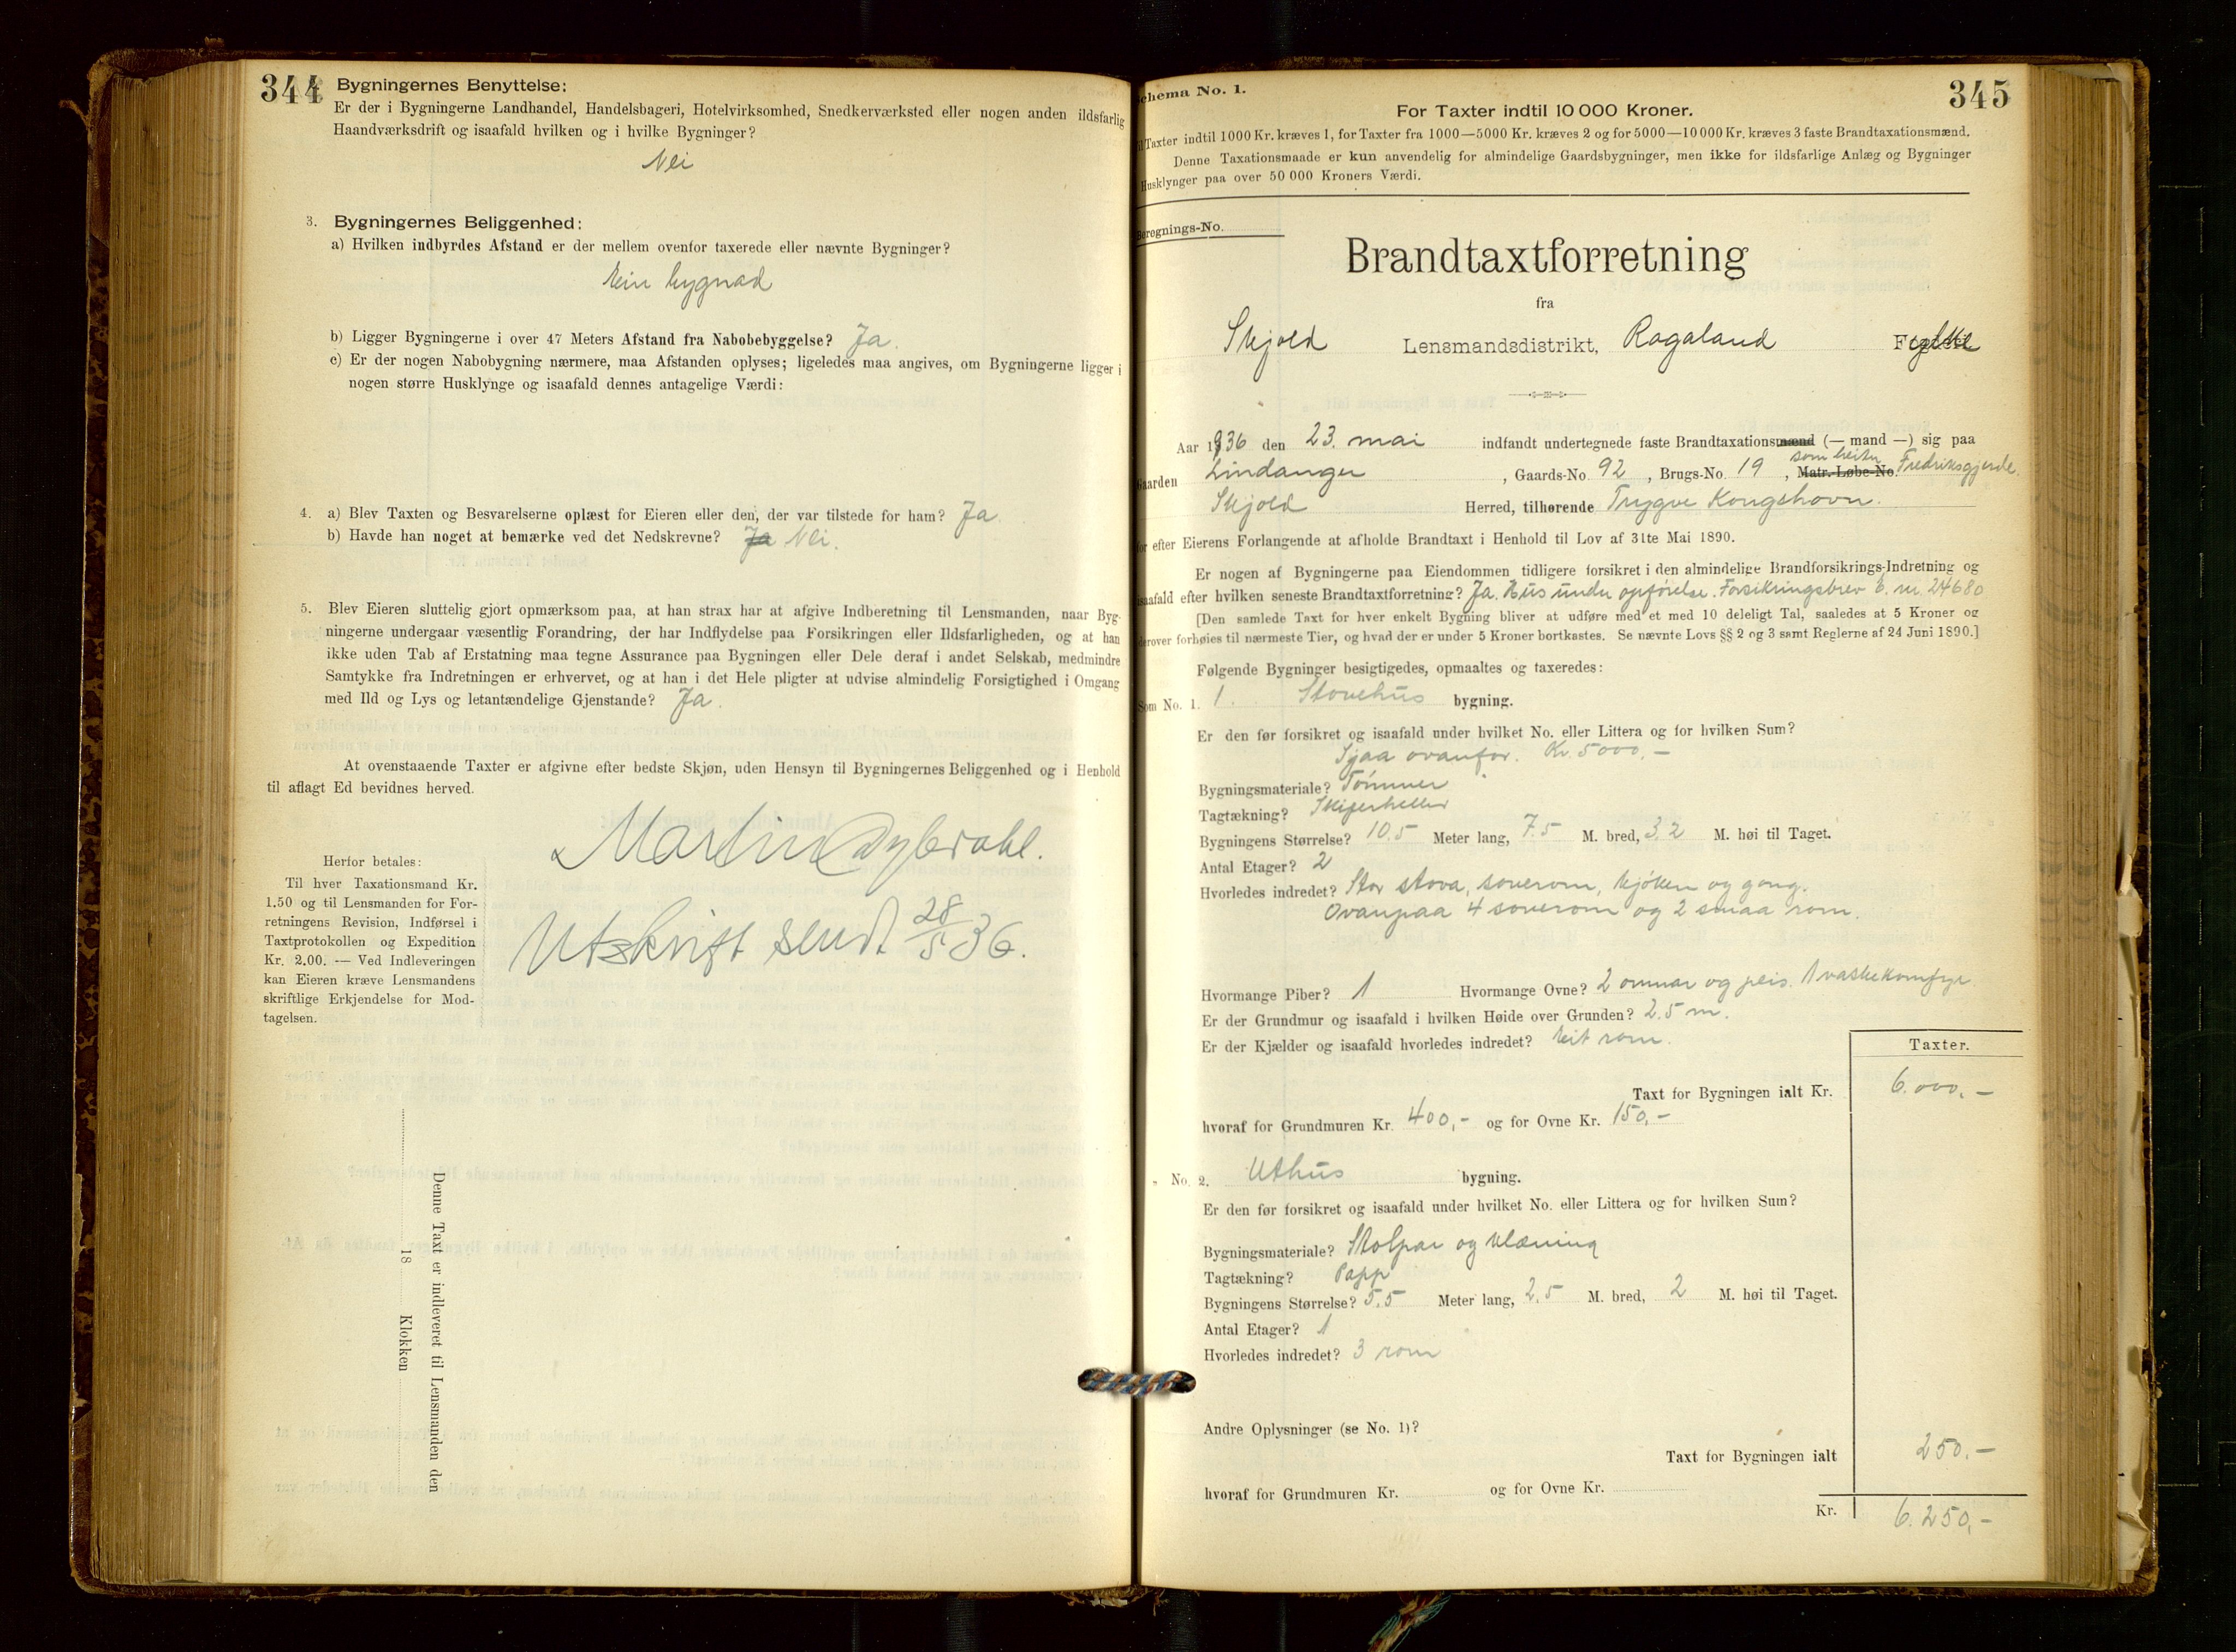 344
Bygningernes Benyttelse:
Er der i Bygningerne Landhandel, Handelsbageri, Hotelvirksomhed, Snedkerværksted eller nogen anden ildsfarlig
Haandværksdrift og isaafald hvilken og i hvilke Bygninger?
Nei
3. Bygningernes Beliggenhed:
a) Hvilken indbyrdes Afstand er der mellem ovenfor taxerede eller nævnte Bygninger?
Ein bygnad
b) Ligger Bygningerne i over 47 Meters Afstand fra Nabobebyggelse? Ja.
c) Er der nogen Nabobygning nærmere, maa Afstanden oplyses; ligeledes maa angives, om Bygningerne ligger i
nogen større Husklynge og isaafald dennes antagelige Værdi:
4. a) Blev Taxten og Besvarelserne oplæst for Eieren eller den, der var tilstede for ham? Ja.
b) Havde han noget at bemærke ved det Nedskrevne? Ja Nei.
5. Blev Eieren sluttelig gjort opmærksom paa, at han strax har at afgive Indberetning til Lensmanden, naar Byg-
ningerne undergaar væsentlig Forandring, der har Indflydelse paa Forsikringen eller Ildsfarligheden, og at han
ikke uden Tab af Erstatning maa tegne Assurance paa Bygningen eller Dele deraf i andet Selskab, medmindre
Samtykke fra Indretningen er erhvervet, og at han i det Hele pligter at udvise almindelig Forsigtighed i Omgang
med Ild og Lys og letantændelige Gjenstande? Ja.
At ovenstaaende Taxter er afgivne efter bedste Skjøn, uden Hensyn til Bygningernes Beliggenhed og i Henhold
til aflagt Ed bevidnes herved.
Martin Dybdahl.
Utskrift sendt 28/5 36.
Herfor betales:
Til hver Taxationsmand Kr.
1.50 og til Lensmanden for For-
retningens Revision, Indførsel i
Taxtprotokollen og Expedition
Kr. 2.00. — Ved Indleveringen
kan Eieren kræve Lensmandens
skriftlige Erkjendelse for Mod-
tagelsen.
Denne Taxt er indleveret til Lensmanden den
18 Klokken
345
Schema No. 1.
For Taxter indtil 10 000 Kroner.
Til Taxter indtil 1000 Kr. kræves 1, for Taxter fra 1000—5000 Kr. kræves 2 og for 5000—10 000 Kr. kræves 3 faste Brandtaxationsmænd.
Denne Taxationsmaade er kun anvendelig for almindelige Gaardsbygninger, men ikke for ildsfarlige Anlæg og Bygninger
Husklynger paa over 50 000 Kroners Værdi.
Beregnings-No.
Brandtaxtforretning
fra
Skjold Lensmandsdistrikt, Rogaland Fylke
Aar 1936 den 23. mai indfandt undertegnede faste Brandtaxationsmænd (— mand —) sig paa
Gaarden Lindanger, Gaards-No. 92, Brugs-No. 19, Matr.-Løbe-No. som heiter Fredriksgjerde.
Skjold Herred, tilhørende Trygve Kongshavn.
for efter Eierens Forlangende at afholde Brandtaxt i Henhold til Lov af 31te Mai 1890.
Er nogen af Bygningerne paa Eiendommen tidligere forsikret i den almindelige Brandforsikrings-Indretning og
isaafald efter hvilken seneste Brandtaxtforretning? Ja. Hus under opførelse. Forsikringsbrev nr. 24680
[Den samlede Taxt for hver enkelt Bygning bliver at udføre med et med 10 deleligt Tal, saaledes at 5 Kroner og
derover forhøies til nærmeste Tier, og hvad der er under 5 Kroner bortkastes. Se nævnte Lovs §§ 2 og 3 samt Reglerne af 24 Juni 1890.]
Følgende Bygninger besigtigedes, opmaaltes og taxeredes:
Som No. 1. 1. Stovehus bygning.
Er den før forsikret og isaafald under hvilket No. eller Littera og for hvilken Sum?
Sjaa ovanfor. Kr. 5000.-
Bygningsmateriale? Tømmer
Tagtækning? Skiferheller
Bygningens Størrelse? 10.5 Meter lang, 7.5 M. bred, 3,2 M. høi til Taget.
Antal Etager? 2
Hvorledes indredet? Stor stova, soverom, kjøken og gong.
Ovanpaa 4 soverom og 2 smaa rom.
Hvormange Piber? 1 Hvormange Ovne? 2 omnar og peis. 1 vaskekomfyr
Er der Grundmur og isaafald i hvilken Høide over Grunden? 2.5 m.
Er der Kjælder og isaafald hvorledes indredet? Eit rom.
Taxter.
Taxt for Bygningen ialt Kr. 6.000.-
hvoraf for Grundmuren Kr. 400,- og for Ovne Kr. 150,-
" No. 2. Uthus bygning.
Er den før forsikret og isaafald under hvilket No. eller Littera og for hvilken Sum?
Bygningsmateriale? Stolpar og klædning
Tagtækning? Papp
Bygningens Størrelse? 5,5 Meter lang, 2,5 M. bred, 2 M. høi til Taget.
Antal Etager? 1
Hvorledes indredet? 3 rom
Andre Oplysninger (se No. 1)?
Taxt for Bygningen ialt 250.-
hvoraf for Grundmuren Kr. og for Ovne Kr.
Kr. 6.250,-